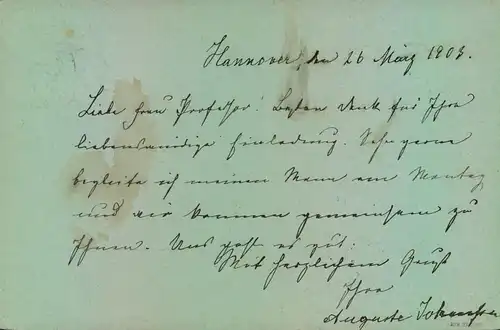 Hannover, den 26 März 1903.
Liebe Frau Professor! Besten Dank für Ihre
liebenswürdige Einladung. Sehr gerne
begleite ich meinen Mann am Montag
und wir kommen gemeinsam zu
Ihnen. Uns geht es gut.
Mit herzlichem Gruß
Ihre
Auguste